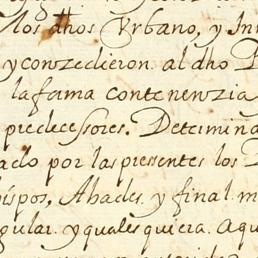 los dħos Vrbano, y In
y conzedieron al dho
la fama contenenzia
predecessores. Determina
ado por las presentes los
ispos, Abades y final m
gular. y qualesquiera. Aqu